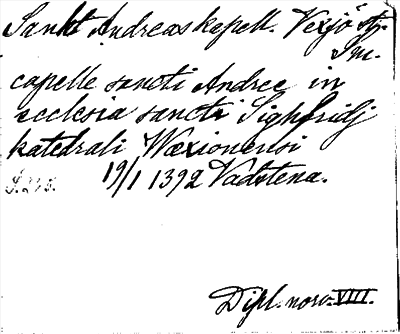 Sankt Andreas kapell. Vexjö stj.
Sm.
capelle sancti Andree in
ecclesia sancti Sighfridj
katedrali Wexionensi
19/1 1392 Vadstena.
Dipl. norv. VIII.